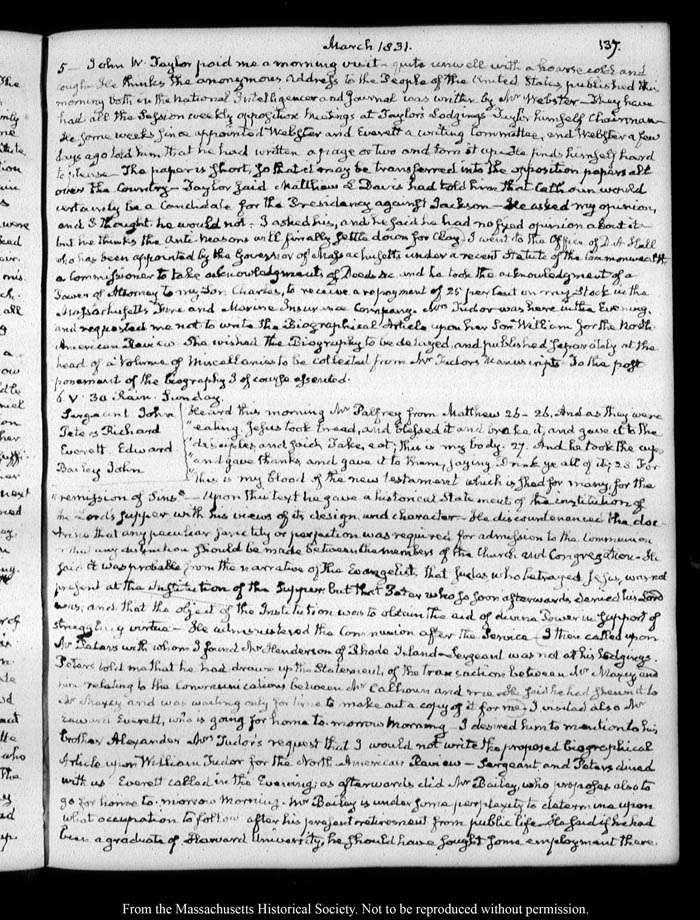 March 1831.
137.
5— John W. Taylor paid me a morning visit— quite unwell with a hoarse cold and
cough— He thinks the anonymous Address to the People of the United States, published this
morning both in the National Intelligencer and Journal was written by Mr Webster— They have
had all the Session weekly opposition meetings at Taylor's Lodgings Taylor himself Chairman—
He some weeks since appointed Webster and Everett a writing Committee, and Webster a few
days ago told him that he had written a page or two and torn it up— He finds himself hard
to please— The paper is short, so that it may be transferred into the opposition papers all
over the Country— Taylor said Matthew L. Davis had told him that Calhoun would
certainly be a Candidate for the Presidency against Jackson— He asked my opinion,
and I thought he would not— I asked his, and he said he had no fixed opinion about it
but he thinks the Anti-Masons will finally settle down for Clay. I went to the Office of D. A. Hall
who has been appointed by the Governor of Massachusetts under a recent Statute of the Commonwealth
a Commissioner to take acknowledgments of Deeds &c and he took the acknowledgment of a
Power of Attorney to my Son Charles, to receive a repayment of 25 per Cent on my Stock in the
Massachusetts Fire and Marine Insurance Company. Mrs Tudor was here in the Evening,
and requested me not to write the Biographical Article upon her Son William for the North
American Review. She wished the Biography to be delayed, and published separately at the
head of a Volume of Miscellanies to be collected from Mr Tudor's Manuscripts— To the post
ponement of the biography I of course assented.
6. V. 30 Rain. Sunday.
Sergeant John
Peters Richard
Everett. Edward
Bailey John
Heard this morning Mr Palfrey from Matthew 26-26. And as they were
"eating, Jesus took bread, and blessed it and brake it, and gave it to the
"disciples, and said, Take, eat; this is my body. 27. And he took the cup,
"and gave thanks, and gave it to them, saying, Drink ye all of it; 28 For
"this is my blood of the new testament which is shed for many, for the
"remission of Sins"— Upon this text he gave a historical Statement of the institution of
the Lord's Supper with his views of its design and character— He discountenanced the doc-
trine that any peculiar sanctity or perfection was required for admission to the Communion
or that any distinction should be made between the members of the Church and Congregation— He
said it was probable from the narrative of the Evangelist, that Judas who betrayed Jesus, was not
present at the Institution of the Supper, but that Peter who so soon afterwards denied his Lord
was; and that the object of the Institution was to obtain the aid of divine Power in support of
struggling virtue— He administered the Communion after the Service— I then called upon
Mr Peters with whom I found Mr Henderson of Rhode Island— Sergeant was not at his lodgings.
Peters told me that he had drawn up the Statement, of the transactions between Mr Maxcy and
him relating to the Communications between Mr Calhoun and me. He said he had shewn it to
Mr Maxcy and was waiting only for time to make out a copy of it for me. I visited also Mr
Edward Everett, who is going for home to-morrow Morning— I desired him to mention to his
brother Alexander Mrs Tudor's request that I would not write the proposed biographical
Article upon William Tudor for the North American Review— Sergeant and Peters dined
with us Everett called in the Evening; as afterwards did Mr Bailey, who proposes also to
go for home to-morrow Morning. Mr Bailey is under some perplexity to determine upon
what occupation to follow after his present retirement from public life. He said if he had
been a graduate of Harvard University, he should have sought some employment there
From the Massachusetts Historical Society. Not to be reproduced without permission.